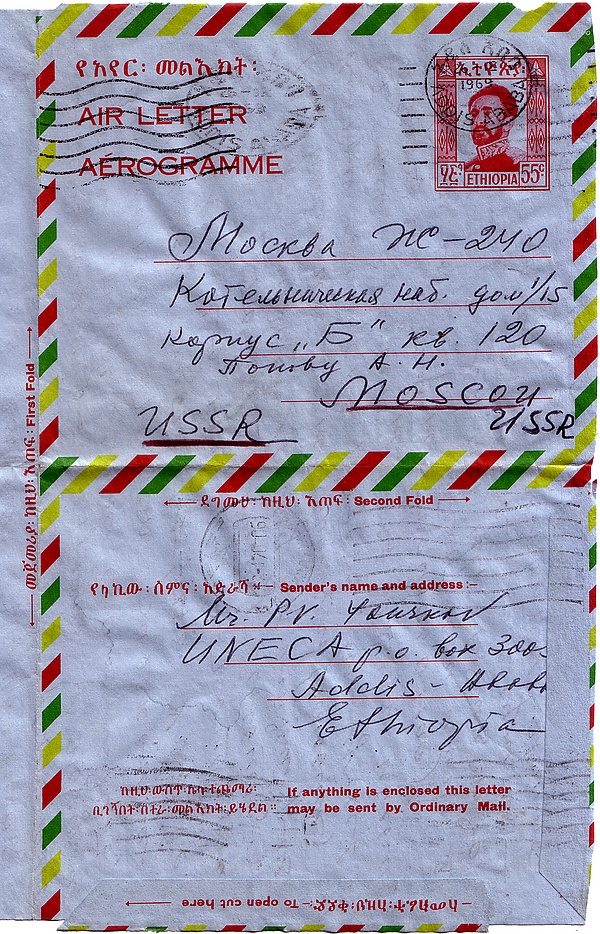 የአየር፡ መልእክት፡
AIR LETTER
AÉROGRAMME
ኢትዮጵያ
1969
ADDIS ABABA
ETHIOPIA 55c
Москва Ж-240
Котельническая наб. дом 1/15
Корпус „Б" кв. 120
Попову А. Н.
MOSCOU
USSR
USSR
መጀመሪያ፡ ከዚህ፡ እጠፍ፡ First Fold
ደግመህ፡ ከዚህ፡ እጠፍ፡ Second Fold
የላኪው፡ ስምና፡ አድራሻ፡— Sender's name and address:—
Mr. P.V.
UNECA p.o. box 3005
Addis-
Ethiopia
If anything is enclosed this letter
may be sent by Ordinary Mail.
ለመክፈት፡ ከዚህ፡ ቅደድ፡— To open cut here